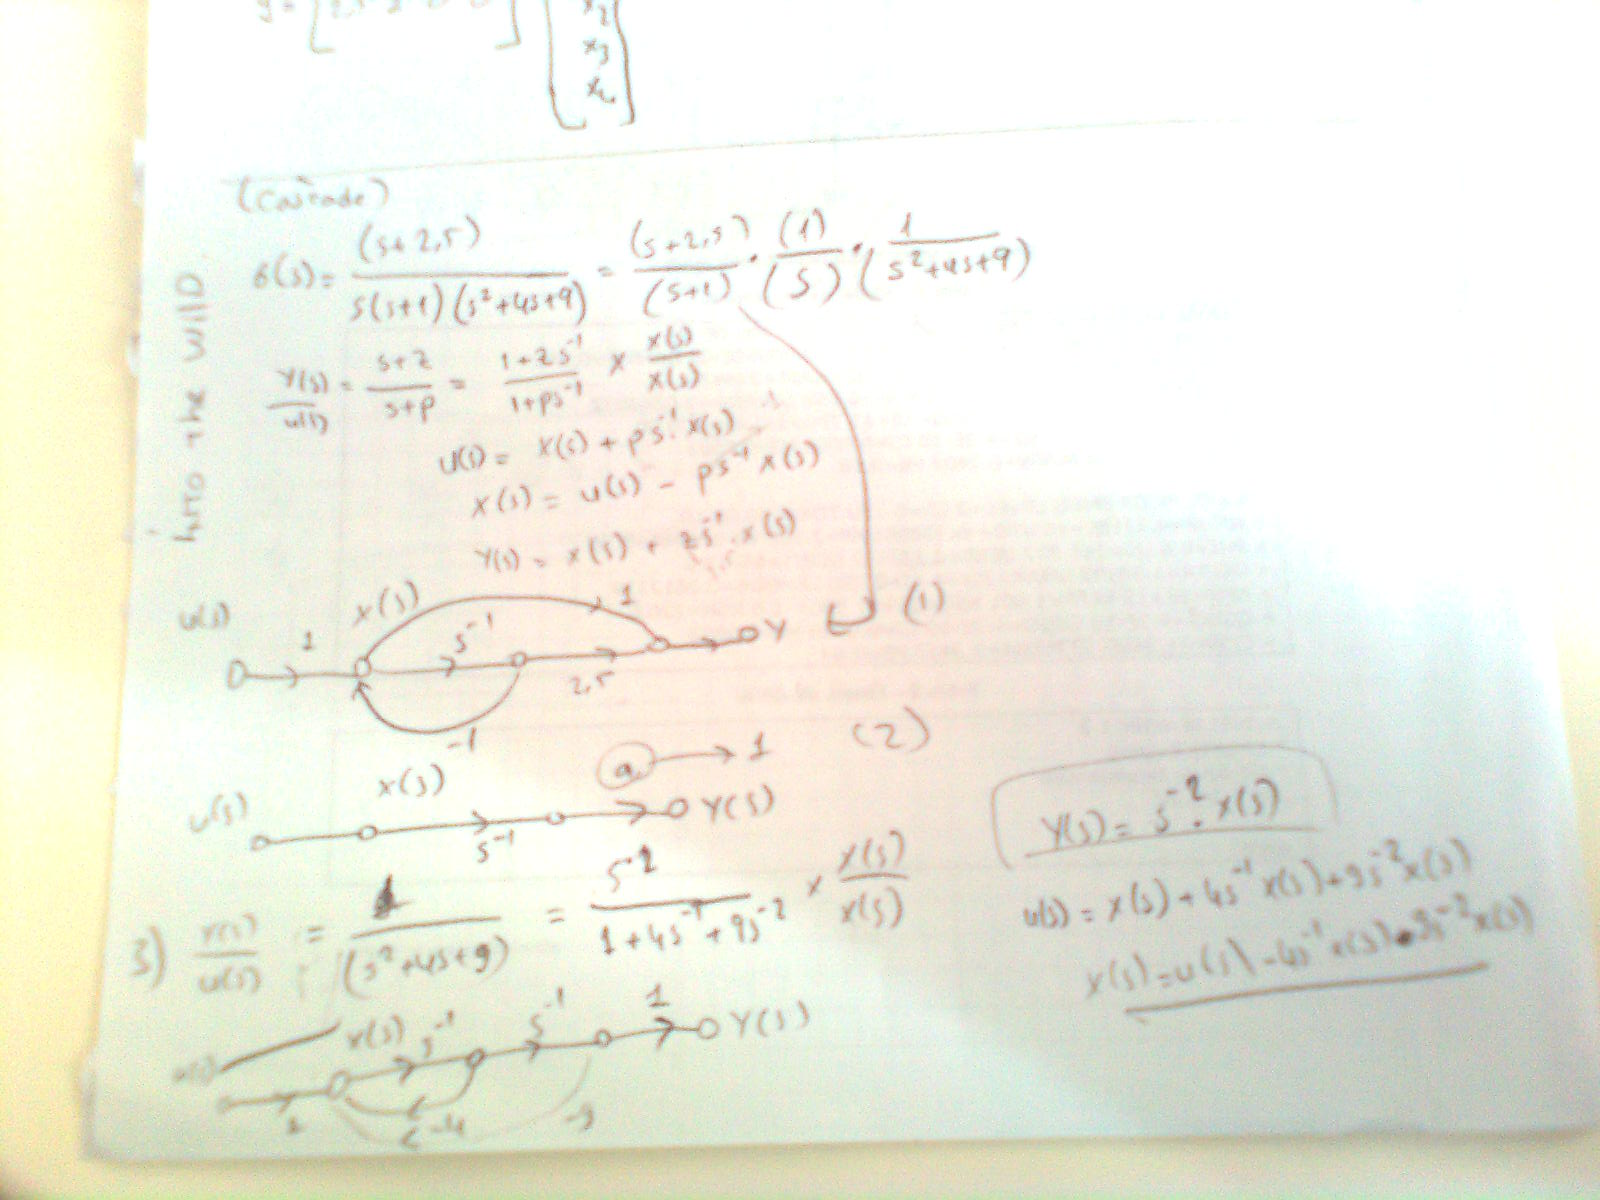 x2
x3
x4
(Cascade)
G(s) = (s+2,5) / s(s+1)(s²+4s+9) = (s+2,5)/(s+1) · (1)/(s) · 1/(s²+4s+9)
Y(s)/U(s) = s+z/s+p = 1+zs⁻¹/1+ps⁻¹ x X(s)/X(s)
U(s) = X(s) + ps⁻¹.X(s)
X(s) = U(s) - ps⁻¹X(s)
Y(s) = X(s) + zs⁻¹.X(s)
into the wilD
U(s) 1 X(s) s⁻¹ 1 2,5 -1 Y (1)
a → 1 (2)
U(s) X(s) s⁻¹ Y(s)
Y(s) = s⁻².X(s)
3) Y(s)/U(s) = 1/(s²+4s+9) = s⁻²/1+4s⁻¹+9s⁻² x X(s)/X(s)
U(s) = X(s) + 4s⁻¹X(s) + 9s⁻²X(s)
X(s) = U(s) - 4s⁻¹X(s) - 9s⁻²X(s)
X(s) s⁻¹ s⁻¹ 1 Y(s)
-4 -9